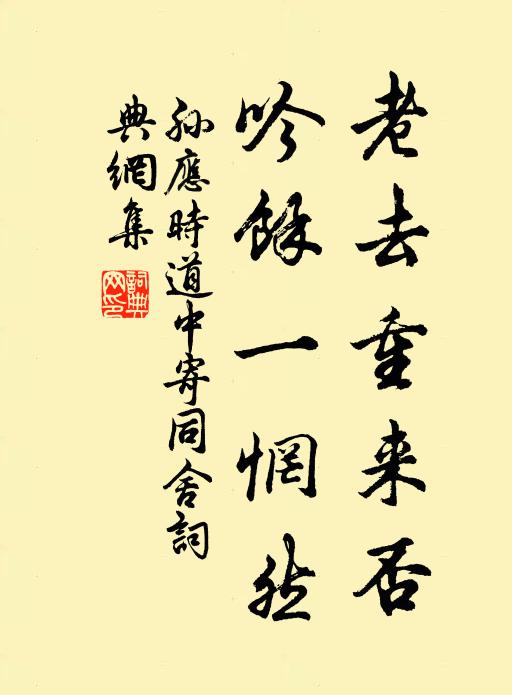 老去重来否
吟餘一惘然
孙應時道中寄同舍詞
典網集
詞典网印